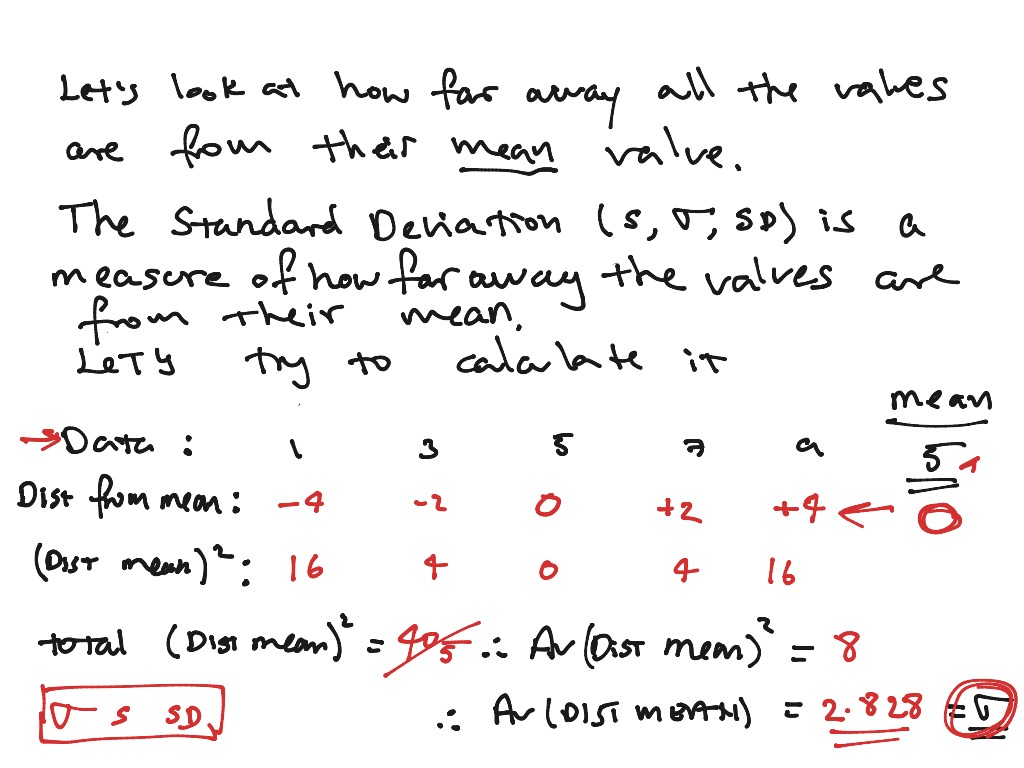 Let's look at how far away all the values
are from their mean value.
The Standard Deviation (s, σ, SD) is a
measure of how far away the values are
from their mean.
Let's try to calculate it
mean
→ Data: 1 3 5 7 9 5
Dist from mean: -4 -2 0 +2 +4 ← 0
(Dist mean)²: 16 4 0 4 16
total (Dist mean)² = 40 5 ∴ Av(Dist mean)² = 8
∴ Av(DIST MEAN) = 2.828 = σ
σ s SD